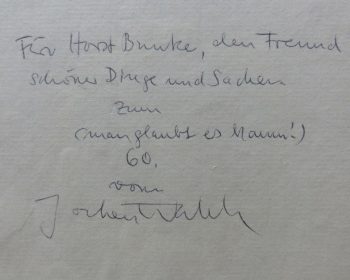 Für Horst Brucke, den Freund
schöner Dinge und Sachen
zum
(man glaubt es kaum!)
60.
vom
Jochen